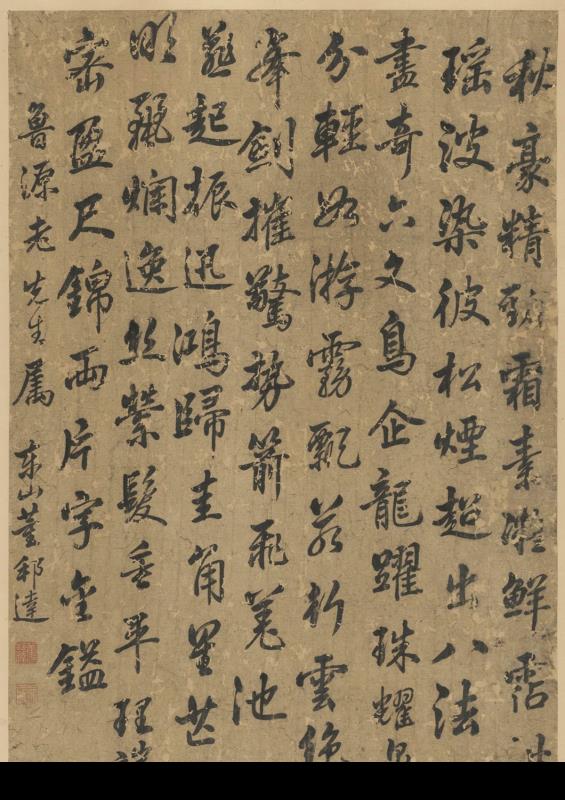 秋豪精勁霜素凝鮮霑
瑤波染彼松煙超出八法
盡奇六文鳥企龍躍珠耀
分輕如游霧飄若雲絕
峯劍摧驚勢箭飛差池
燕起振迅鴻歸圭角星芒
明麗爛逸絲縈髮垂平理
密盈尺錦兩片字金鎰
魯源老先生屬 東山董邦達